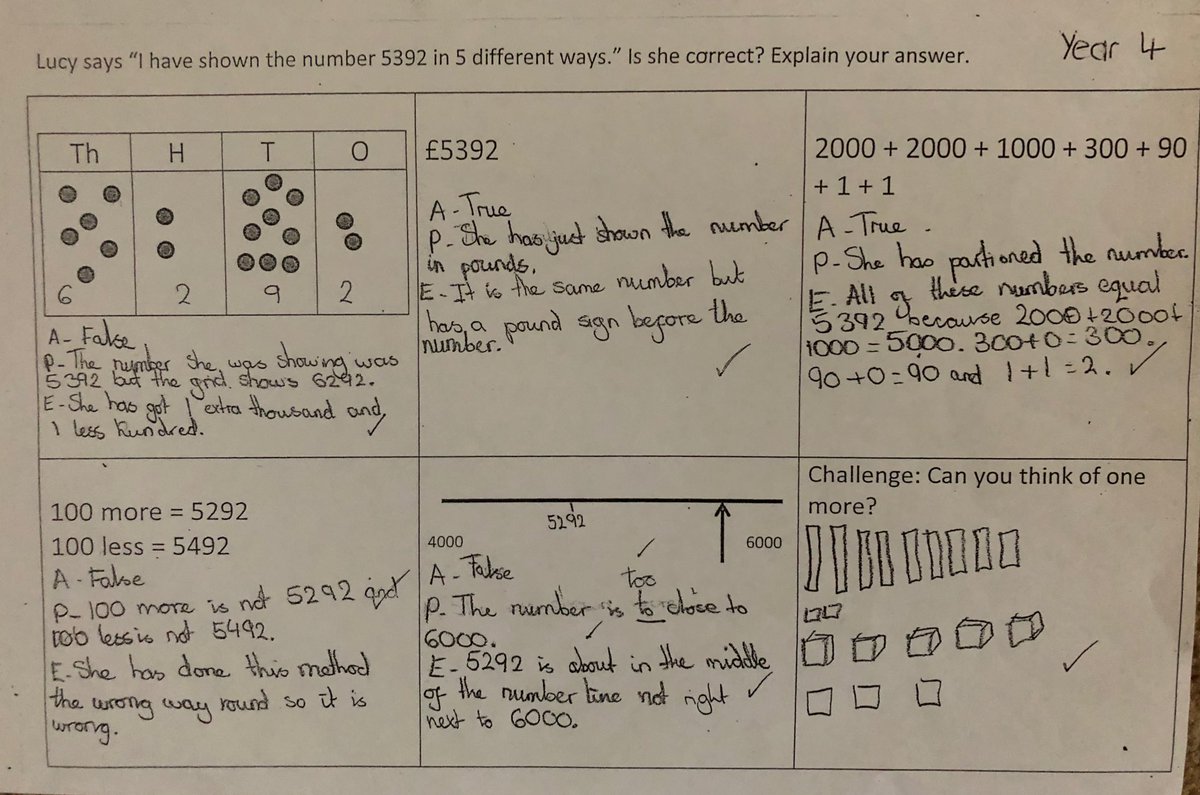 Lucy says “I have shown the number 5392 in 5 different ways.” Is she correct? Explain your answer.
Year 4
Th H T O
6 2 9 2
A- False
P-The number she was showing was
5392 but the grid shows 6292.
E-She has got 1 extra thousand and
1 less hundred.
£5392
A-True
P-She has just shown the number
in pounds.
E-It is the same number but
has a pound sign before the
number.
2000 + 2000 + 1000 + 300 + 90
+ 1 + 1
A-True.
P-She has partioned the number.
E. All of these numbers equal
5392 because 2000+2000+
1000=5000. 300+0=300.
90+0=90 and 1+1=2.
100 more = 5292
100 less = 5492
A-False
P-100 more is not 5292 and
100 less is not 5492.
E-She has done this method
the wrong way round so it is
wrong.
5292
4000 6000
A-False
too
P. The number is to close to
6000.
E-5292 is about in the middle
of the number line not right
next to 6000.
Challenge: Can you think of one
more?